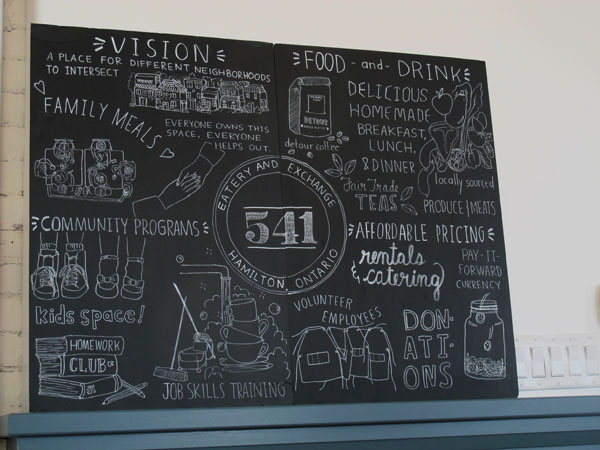 VISION
A PLACE FOR DIFFERENT NEIGHBORHOODS
TO INTERSECT
FAMILY MEALS
EVERYONE OWNS THIS
SPACE, EVERYONE
HELPS OUT.
COMMUNITY PROGRAMS
kids space!
HOMEWORK
CLUB
JOB SKILLS TRAINING
EATERY AND EXCHANGE
541
HAMILTON, ONTARIO
FOOD - and - DRINK
DETOUR
detour coffee
DELICIOUS
HOMEMADE
BREAKFAST,
LUNCH,
& DINNER
Fair Trade
TEAS
locally sourced
PRODUCE & MEATS
AFFORDABLE PRICING
rentals
& catering
PAY-IT-
FORWARD
CURRENCY
VOLUNTEER
EMPLOYEES
DON-
ATI-
ONS